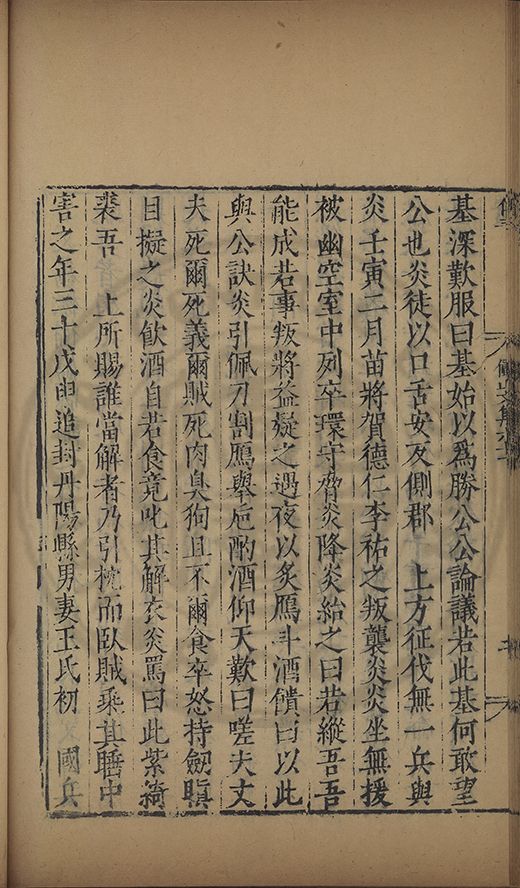 基深歎服曰基始以爲勝公公論議若此基何敢望
公也炎徒以口舌安反側郡　上方征伐無一兵與
炎壬寅二月苗將賀德仁李祐之叛襲炎炎坐無援
被幽空室中列卒環守脅炎降炎紿之曰若縱吾吾
能成若事叛將益疑之遇夜以炙鴈斗酒饋曰以此
與公訣炎引佩刀割鴈舉卮酌酒仰天歎曰嗟夫丈
夫死爾死義爾賊死肉臭狗且不爾食卒怒持劒瞋
目擬之炎飮酒自若食竟叱其解衣炎罵曰此紫綺
裘吾　上所賜誰當解者乃引枕而臥賊乘其睡中
害之年三十戊申追封丹陽縣男妻王氏初　國兵